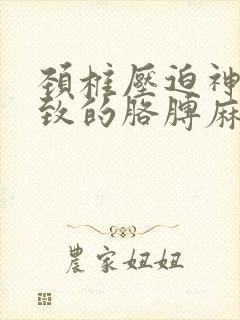 頚椎壓迫神
致的胳膊麻
農家妞妞